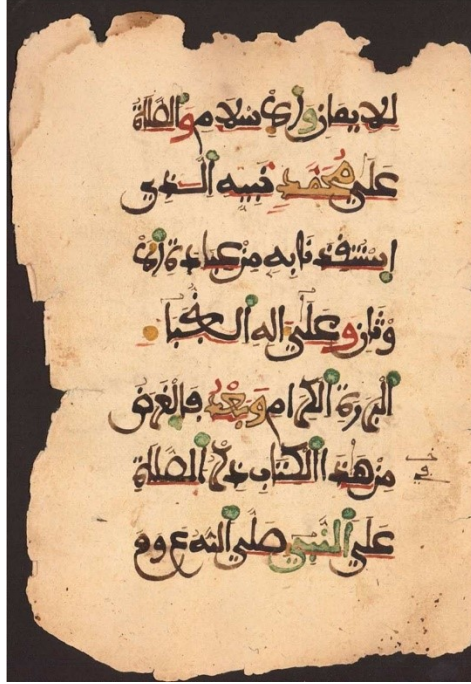 للايمان والاسلام والصلاة
على محمد نبيه الذي
استنقذنا به من عبادة الا
وثان وعلى اله النجبا
البررة الكرام وبعد فالغرض
من هذا الكتاب ذكر الصلاة
على النبي صلى الله ع وم